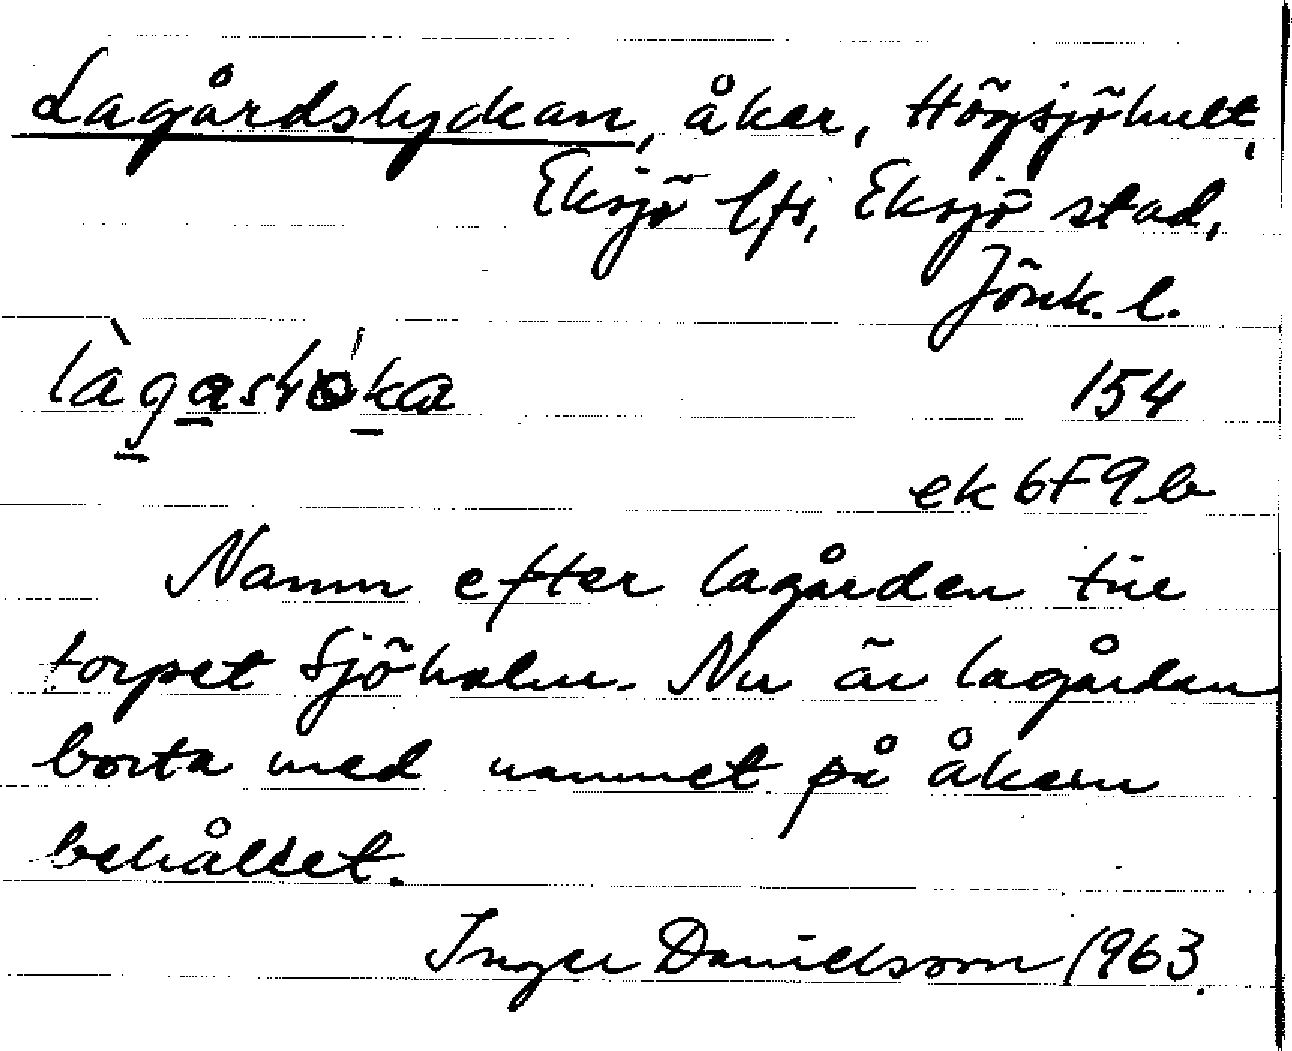 Lagårdslyckan, åker, Högsjöhult,
Eksjö lfs, Eksjö stad,
Jönk. l.
154
ek 6F9b
Namn efter lagården till
torpet Sjöholm. Nu är lagården
borta med namnet på åkern
behållet.
Inger Danielsson 1963.